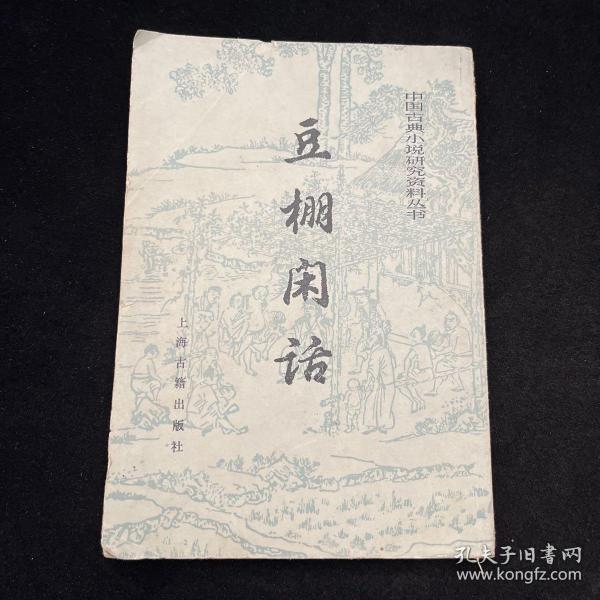 中国古典小说研究资料丛书
豆棚闲话
上海古籍出版社
孔夫子旧书网
www.kongfz.com